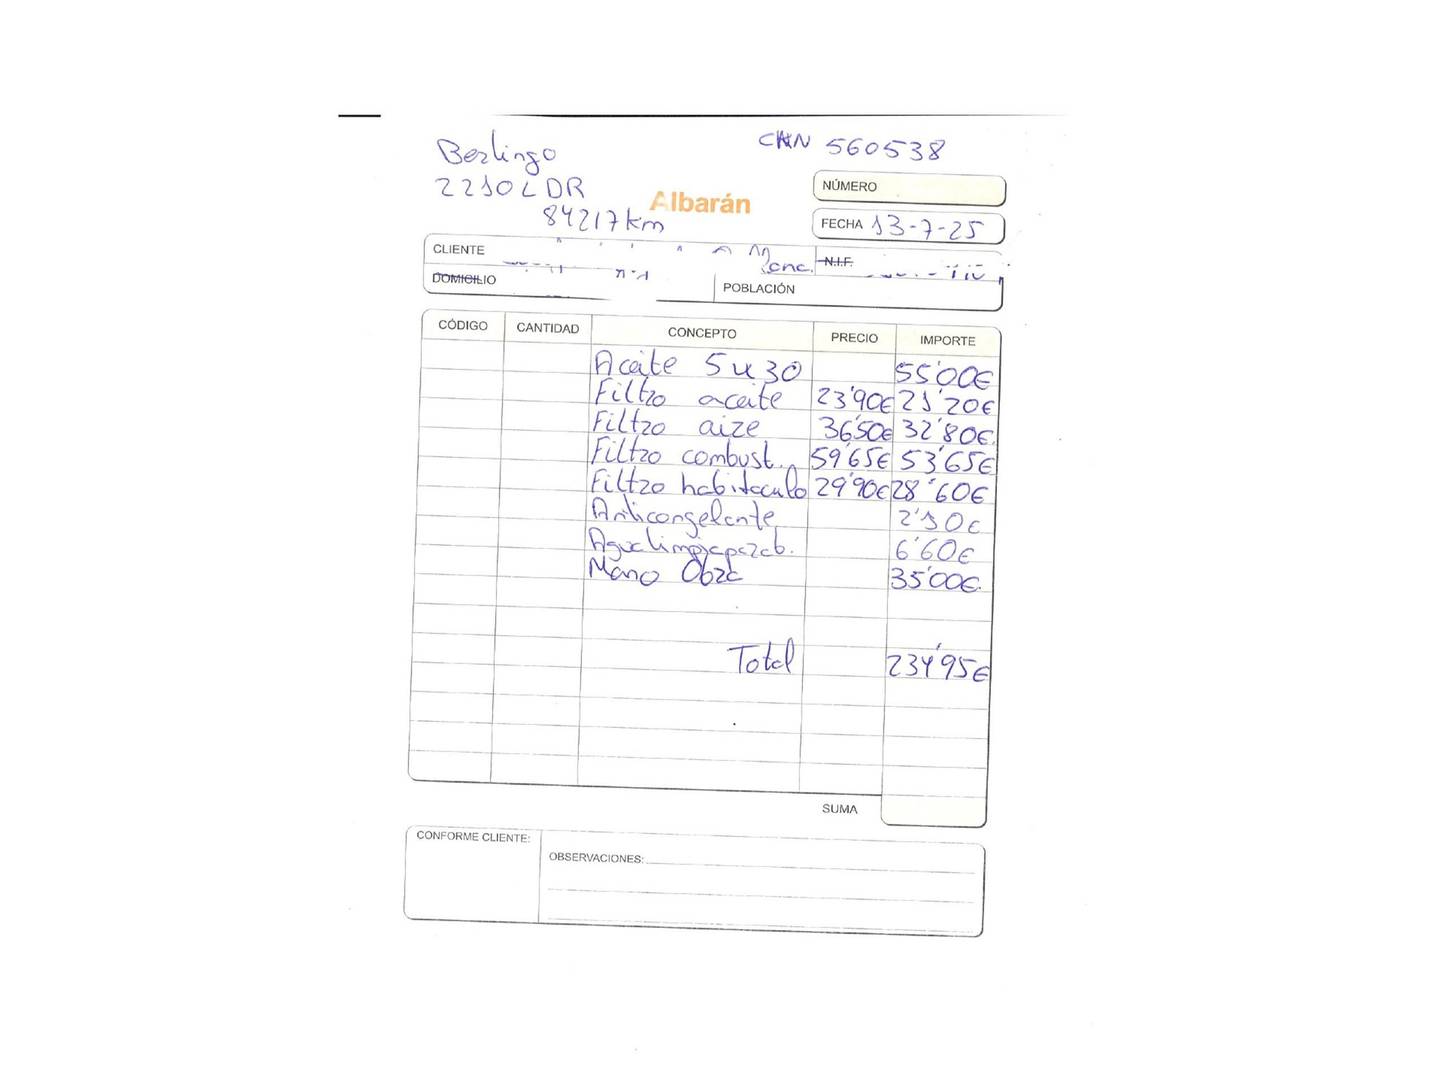 Berlingo
CHN 560538
2210LDR
84217km
Albarán
NÚMERO
FECHA 13-7-25
CLIENTE
N.I.F.
DOMICILIO
POBLACIÓN
CÓDIGO CANTIDAD CONCEPTO PRECIO IMPORTE
Aceite 5w30 55'00€
Filtro aceite 23'90€ 21'20€
Filtro aire 36'50€ 32'80€
Filtro combust. 59'65€ 53'65€
Filtro habitaculo 29'90€ 28'60€
Anticongelante 2'10€
Agua limpiaparab. 6'60€
Mano Obra 35'00€
Total 234'95€
SUMA
CONFORME CLIENTE:
OBSERVACIONES: